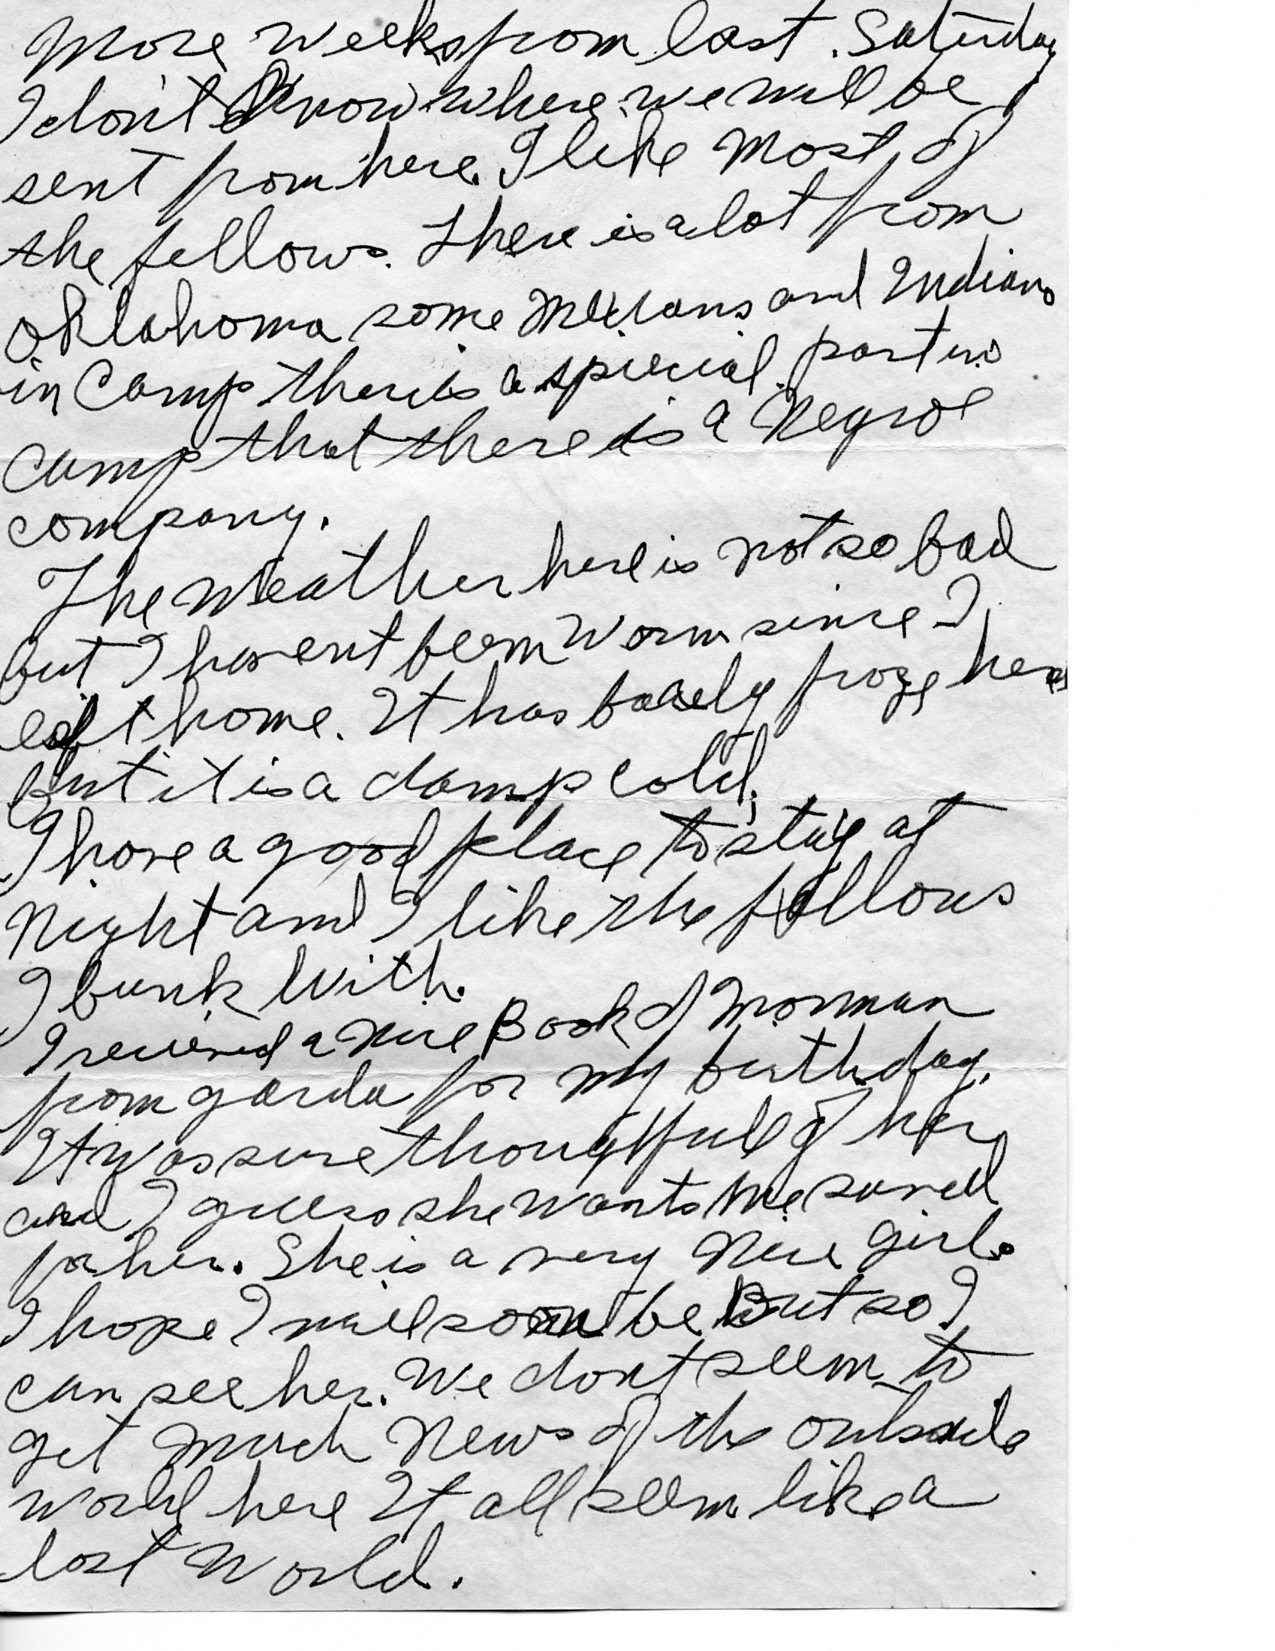 More weeks from last. Saturday
I don't know where we will be
sent from here. I like most of
the fellows. There is a lot from
Oklahoma some Mexicans and Indians
in Camp there is a spiecial part in
Camp that there is a Negroe
company.
The Weather here is not so bad
but I havent been Warm since I
left home. It has barely froze here
But it is a damp cold.
I have a good place to stay at
Night and I like the fellows
I bunk With.
I recieved a nice Book of Morman
from garda for my birthday.
It was sure thoughtful of her
and I guess she wants me saved
for her. She is a very Nice girl.
I hope I will soon be But so I
can see her. We dont seem to
get much News of the outside
world here It all seem like a
lost World.